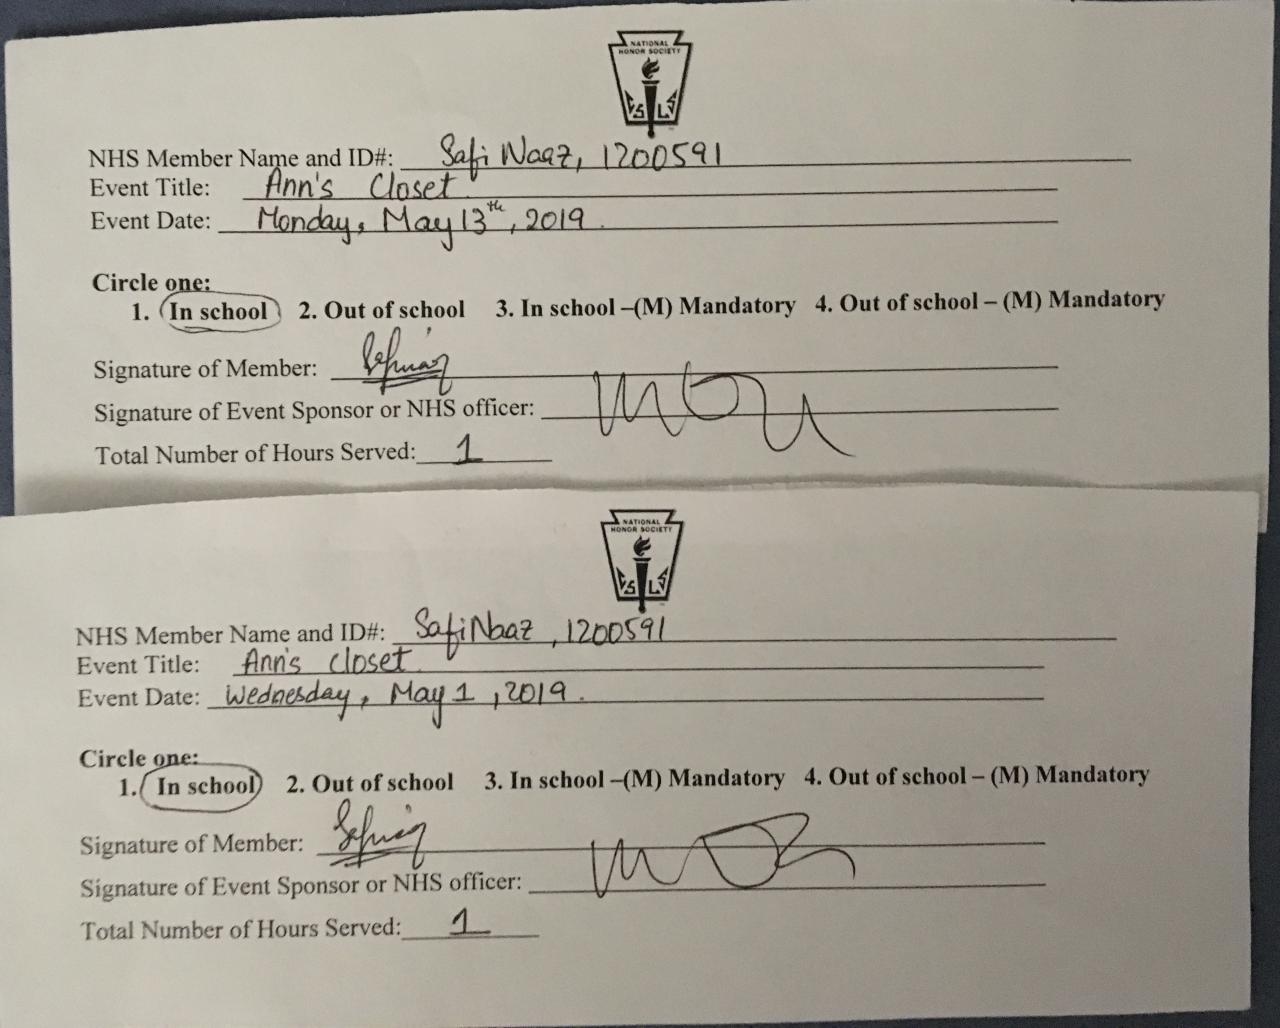 NATIONAL
HONOR SOCIETY
NHS Member Name and ID#: Safi Naaz, 1200591
Event Title: Ann's Closet
Event Date: Monday, May 13th, 2019.
Circle one:
1. In school 2. Out of school 3. In school –(M) Mandatory 4. Out of school – (M) Mandatory
Signature of Member:
Signature of Event Sponsor or NHS officer:
Total Number of Hours Served: 1
NATIONAL
HONOR SOCIETY
NHS Member Name and ID#: Safi Naaz, 1200591
Event Title: Ann's closet
Event Date: Wednesday, May 1, 2019.
Circle one:
1. In school 2. Out of school 3. In school –(M) Mandatory 4. Out of school – (M) Mandatory
Signature of Member:
Signature of Event Sponsor or NHS officer:
Total Number of Hours Served: 1